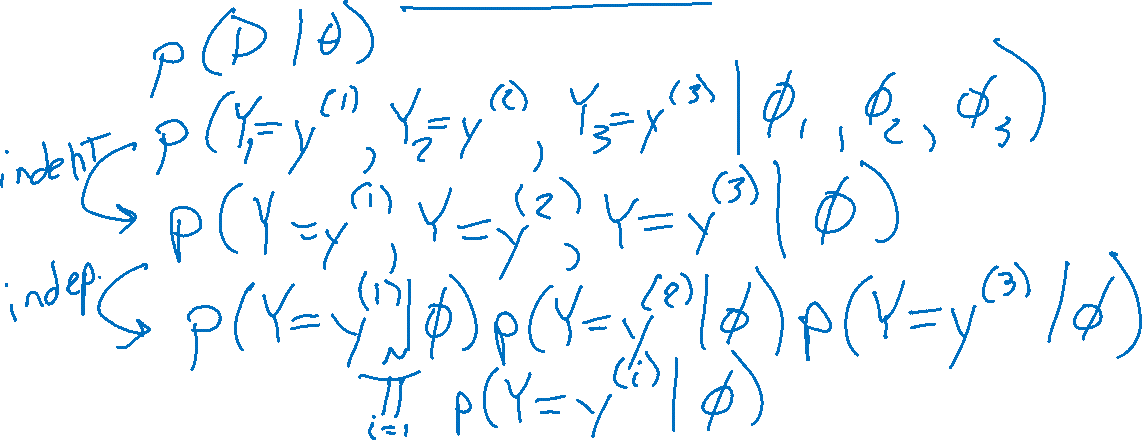 p(D|θ)
p(Y₁=y⁽¹⁾, Y₂=y⁽²⁾, Y₃=y⁽³⁾ | ϕ₁, ϕ₂, ϕ₃)
indenT
p(Y=y⁽¹⁾, Y=y⁽²⁾, Y=y⁽³⁾ | ϕ)
indep.
p(Y=y⁽¹⁾|ϕ) p(Y=y⁽²⁾|ϕ) p(Y=y⁽³⁾|ϕ)
∏ᵢ₌₁ᴺ p(Y=y⁽ⁱ⁾|ϕ)